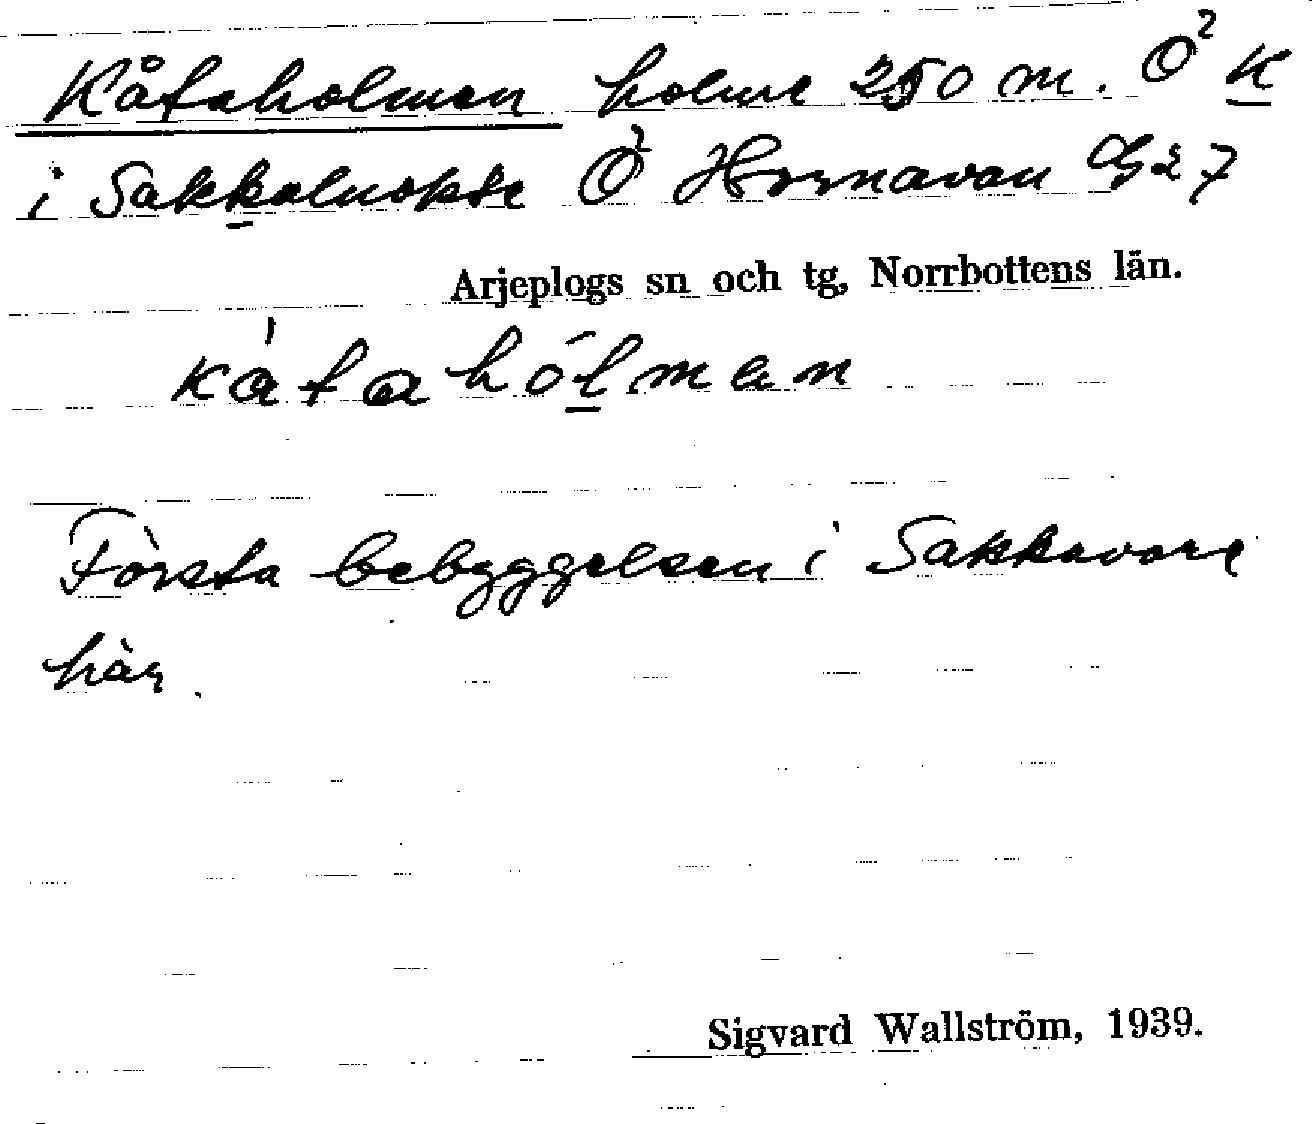 Kåtaholmen holme 250 m. Ö² K
i Sakkaluokte Ö² Hornavan G27
Arjeplogs sn och tg, Norrbottens län.
kåtahólman
Första bebyggelsen i Sakkavare
här.
Sigvard Wallström, 1939.